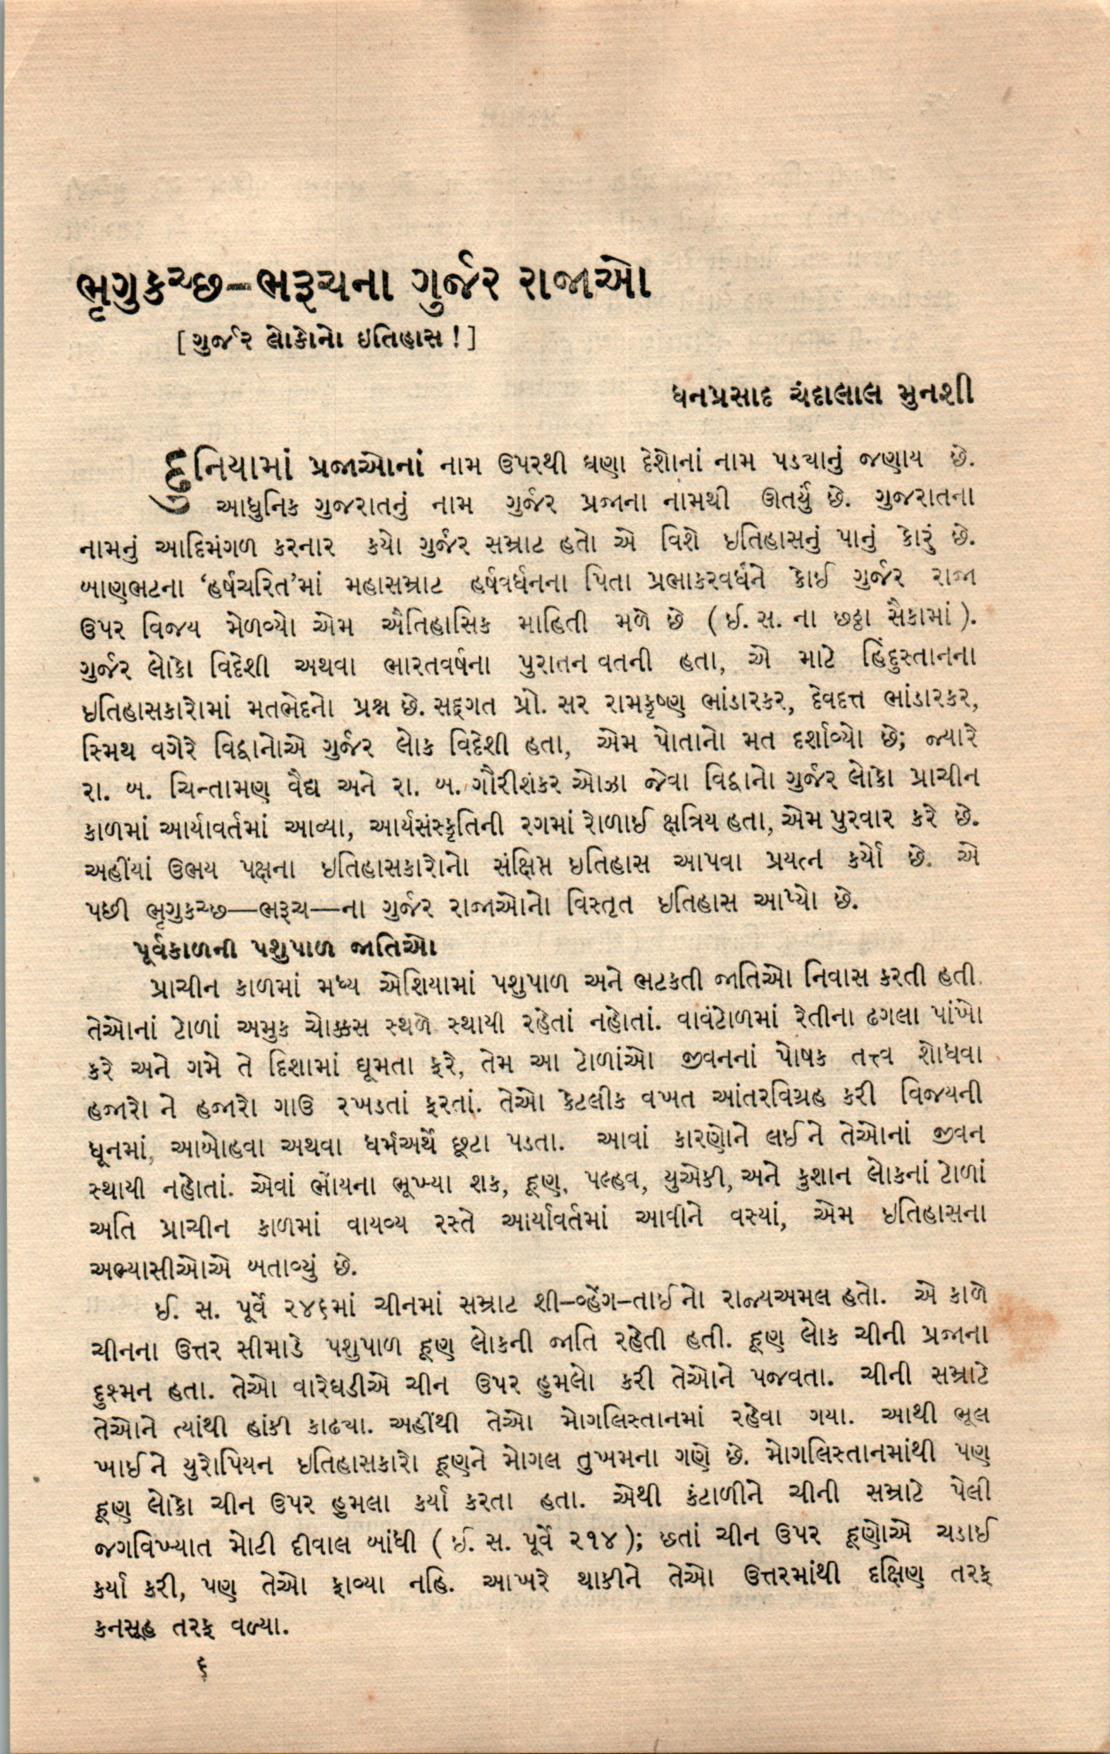 ભૃગુકચ્છ–ભરૂચના ગુર્જર રાજાઓ
[ ગુર્જર લોકોનો ઇતિહાસ ! ]
ધનપ્રસાદ ચંદાલાલ મુનશી
દુનિયામાં પ્રજાઓનાં નામ ઉપરથી ઘણા દેશોનાં નામ પડ્યાનું જણાય છે.
આધુનિક ગુજરાતનું નામ ગુર્જર પ્રજાના નામથી ઊતર્યું છે. ગુજરાતના
નામનું આદિમંગળ કરનાર કયો ગુર્જર સમ્રાટ હતો એ વિશે ઇતિહાસનું પાનું કોરું છે.
બાણભટના ‘હર્ષચરિત’માં મહાસમ્રાટ હર્ષવર્ધનના પિતા પ્રભાકરવર્ધને કોઈ ગુર્જર રાજા
ઉપર વિજય મેળવ્યો એમ ઐતિહાસિક માહિતી મળે છે ( ઈ. સ. ના છઠ્ઠા સૈકામાં ).
ગુર્જર લોકો વિદેશી અથવા ભારતવર્ષના પુરાતન વતની હતા, એ માટે હિંદુસ્તાનના
ઇતિહાસકારોમાં મતભેદનો પ્રશ્ન છે. સદ્ગત પ્રો. સર રામકૃષ્ણ ભાંડારકર, દેવદત્ત ભાંડારકર,
સ્મિથ વગેરે વિદ્વાનોએ ગુર્જર લોક વિદેશી હતા, એમ પોતાનો મત દર્શાવ્યો છે; જ્યારે
રા. બ. ચિન્તામણ વૈદ્ય અને રા. બ. ગૌરીશંકર ઓઝા જેવા વિદ્વાનો ગુર્જર લોકો પ્રાચીન
કાળમાં આર્યાવર્તમાં આવ્યા, આર્યસંસ્કૃતિની રગમાં રોળાઈ ક્ષત્રિય હતા, એમ પુરવાર કરે છે.
અહીંયાં ઉભય પક્ષના ઇતિહાસકારોનો સંક્ષિપ્ત ઇતિહાસ આપવા પ્રયત્ન કર્યો છે. એ
પછી ભૃગુકચ્છ—ભરૂચ—ના ગુર્જર રાજાઓનો વિસ્તૃત ઇતિહાસ આપ્યો છે.
પૂર્વકાળની પશુપાળ જાતિઓ
પ્રાચીન કાળમાં મધ્ય એશિયામાં પશુપાળ અને ભટકતી જાતિઓ નિવાસ કરતી હતી.
તેઓનાં ટોળાં અમુક ચોક્કસ સ્થળે સ્થાયી રહેતાં નહોતાં. વાવંટોળમાં રેતીના ઢગલા પાંખો
કરે અને ગમે તે દિશામાં ઘૂમતા ફરે, તેમ આ ટોળાંઓ જીવનનાં પોષક તત્ત્વ શોધવા
હજારો ને હજારો ગાઉ રખડતાં ફરતાં. તેઓ કેટલીક વખત આંતરવિગ્રહ કરી વિજયની
ધૂનમાં, આબોહવા અથવા ધર્મઅર્થે છૂટા પડતા. આવાં કારણોને લઈને તેઓનાં જીવન
સ્થાયી નહોતાં. એવાં ભોંયના ભૂખ્યા શક, હૂણ, પલ્હવ, યુએકી, અને કુશાન લોકનાં ટોળાં
અતિ પ્રાચીન કાળમાં વાયવ્ય રસ્તે આર્યાવર્તમાં આવીને વસ્યાં, એમ ઇતિહાસના
અભ્યાસીઓએ બતાવ્યું છે.
ઈ. સ. પૂર્વે ૨૪૬માં ચીનમાં સમ્રાટ શી–વ્હેંગ–તાઈનો રાજ્યઅમલ હતો. એ કાળે
ચીનના ઉત્તર સીમાડે પશુપાળ હૂણ લોકની જાતિ રહેતી હતી. હૂણ લોક ચીની પ્રજાના
દુશ્મન હતા. તેઓ વારેઘડીએ ચીન ઉપર હુમલો કરી તેઓને પજવતા. ચીની સમ્રાટે
તેઓને ત્યાંથી હાંકી કાઢ્યા. અહીંથી તેઓ મોગલિસ્તાનમાં રહેવા ગયા. આથી ભૂલ
ખાઈને યુરોપિયન ઇતિહાસકારો હૂણને મોગલ તુખમના ગણે છે. મોગલિસ્તાનમાંથી પણ
હૂણ લોકો ચીન ઉપર હુમલા કર્યા કરતા હતા. એથી કંટાળીને ચીની સમ્રાટે પેલી
જગવિખ્યાત મોટી દીવાલ બાંધી ( ઈ. સ. પૂર્વે ૨૧૪ ); છતાં ચીન ઉપર હૂણોએ ચડાઈ
કર્યા કરી, પણ તેઓ ફાવ્યા નહિ. આખરે થાકીને તેઓ ઉત્તરમાંથી દક્ષિણ તરફ
કનસૂહ તરફ વળ્યા.
૬